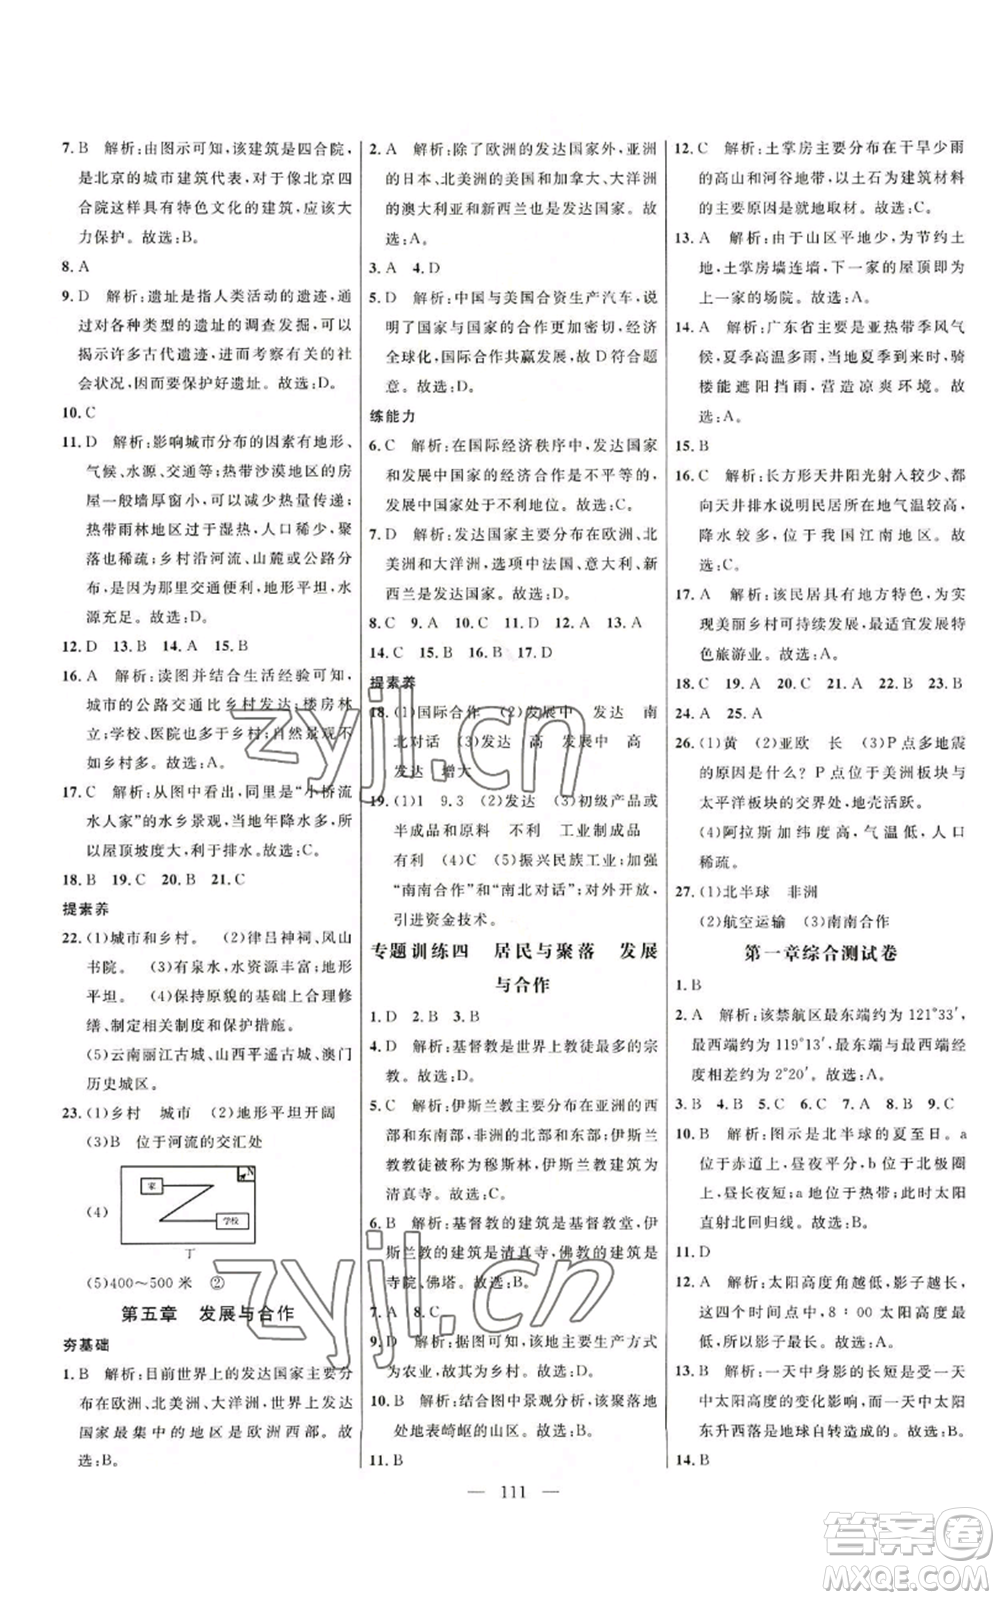 7. B　解析:由图示可知,该建筑是四合院,
是北京的城市建筑代表,对于像北京四
合院这样具有特色文化的建筑,应该大
力保护。故选:B。
8. A
9. D　解析:遗址是指人类活动的遗迹,通
过对各种类型的遗址的调查发掘,可以
揭示许多古代遗迹,进而考察有关的社
会状况,因而要保护好遗址。故选:D。
10. C
11. D　解析:影响城市分布的因素有地形、
气候、水源、交通等;热带沙漠地区的房
屋一般墙厚窗小,可以减少热量传递;
热带雨林地区过于湿热,人口稀少,聚
落也稀疏;乡村沿河流、山麓或公路分
布,是因为这里交通便利,地形平坦,水
源充足。故选:D。
12. D　13. B　14. A　15. B
16. A　解析:读图并结合生活经验可知,
城市的公路交通比乡村发达;楼房林
立;学校、医院也多于乡村;自然景观不
如乡村多。故选:A。
17. C　解析:从图中看出,同里是“小桥流
水人家”的水乡景观,当地年降水多,所
以屋顶坡度大,利于排水。故选:C。
18. B　19. C　20. B　21. C
提素养
22. (1)城市和乡村。　(2)律吕神祠、凤山
书院。　(3)气候温和;水源丰富;地形
平坦。　(4)保持原貌的基础上合理修
缮、制定相关制度和保护措施。
(5)云南丽江古城、山西平遥古城、澳门
历史城区。
23. (1)乡村　城市　(2)地形平坦开阔
(3)B　位于河流的交汇处
(4)
家
N
学校
丁
(5)400～500米　②
第五章　发展与合作
夯基础
1. B　解析:目前世界上的发达国家主要分
布在欧洲、北美洲、大洋洲,世界发达
国家最集中的地区是欧洲西部。故
选:B。
2. A　解析:除了欧洲的发达国家外,亚洲
的日本、北美洲的美国和加拿大、大洋洲
的澳大利亚和新西兰也是发达国家。故
选:A。
3. A　4. D
5. D　解析:中国与美国合资生产汽车,说
明了国家与国家的合作更加密切,经济
全球化,国际合作共赢发展,故D符合题
意。故选:D。
练能力
6. C　解析:在国际经济秩序中,发达国家
和发展中国家的经济合作是不平等的,
发展中国家处于不利地位。故选:C。
7. D　解析:发达国家主要分布在欧洲、北
美洲和大洋洲,选项中法国、意大利、新
西兰是发达国家。故选:D。
8. C　9. A　10. C　11. D　12. A　13. A
14. C　15. B　16. B　17. D
提素养
18. (1)国际合作　(2)发展中　发达　南
北对话　(3)发达　高　发展中　高
发达　增大
19. (1)1　9.3　(2)发达　(3)初级产品或
半成品和原料　不利　工业制成品
有利　(4)C　(5)振兴民族工业;加强
“南南合作”和“南北对话”;对外开放,
引进资金技术。
专题训练四　居民与聚落　发展
与合作
1. D　2. B　3. B
4. D　解析:基督教是世界上教徒最多的宗
教。故选:D。
5. C　解析:伊斯兰教主要分布在亚洲的西
部和东南部,非洲的北部和东部;伊斯兰
教教徒被称为穆斯林,伊斯兰教建筑为
清真寺。故选:C。
6. B　解析:基督教的建筑是基督教堂,伊
斯兰教的建筑是清真寺,佛教的建筑是
寺院、佛塔。故选:B。
7. A　8. C
9. D　解析:据图可知,该地主要生产方式
为农业,故为乡村。故选:D。
10. B　解析:结合图中景观分析,该聚落地
处地表崎岖的山区。故选:B。
11. B
12. C　解析:土掌房主要分布在干旱少雨
的高山和河谷地带,以土石为建筑材料
的主要原因是就地取材。故选:C。
13. A　解析:由于山区平地少,为节约土
地,土掌房墙连墙,下一家的屋顶即为
上一家的场院。故选:A。
14. A　解析:广东省主要是亚热带季风气
候,夏季高温多雨,当地夏季来临时,骑
楼能遮阳挡雨,营造凉爽环境。故
选:A。
15. B
16. C　解析:长方形天井阳光射入较少、都
向天井排水说明民居所在地气温较高,
降水较多,位于我国江南地区。故
选:C。
17. A　解析:该民居具有地方特色,为实
现美丽乡村可持续发展,最适宜发展特
色旅游业。故选:A。
18. C　19. A　20. C　21. A　22. B　23. B
24. A　25. A
26. (1)黄　(2)亚欧　长　(3)P点多地震
的原因是什么?　P点是美洲板块与
太平洋板块的交界处,地壳活跃。
(4)阿拉斯加纬度高,气温低,人口
稀疏。
27. (1)北半球　非洲
(2)航空运输　(3)南南合作
第一章综合测试卷
1. B
2. A　解析:该禁航区最东端约为121°33′,
最西端约为119°13′,最东端与最西端经
度相差约为2°20′。故选:A。
3. B　4. D　5. C　6. A　7. D　8. B　9. C
10. B　解析:图示是北半球的夏至日。a
位于赤道上,昼夜平分,b位于北极圈
上,昼长夜短;a地位于热带;此时太阳
直射北回归线。故选:B。
11. D
12. A　解析:太阳高度角越低,影子越长,
这四个时间点中,8:00太阳高度最
低,所以影子最长。故选:A。
13. B　解析:一天中身影的长短是受一天
中太阳高度的变化影响的,一天中太阳
东升西落是地球自转造成的。故选:B。
14. B
— 111 —
zyjl.cn
zyjl.cn
答案圈
MXQE.COM